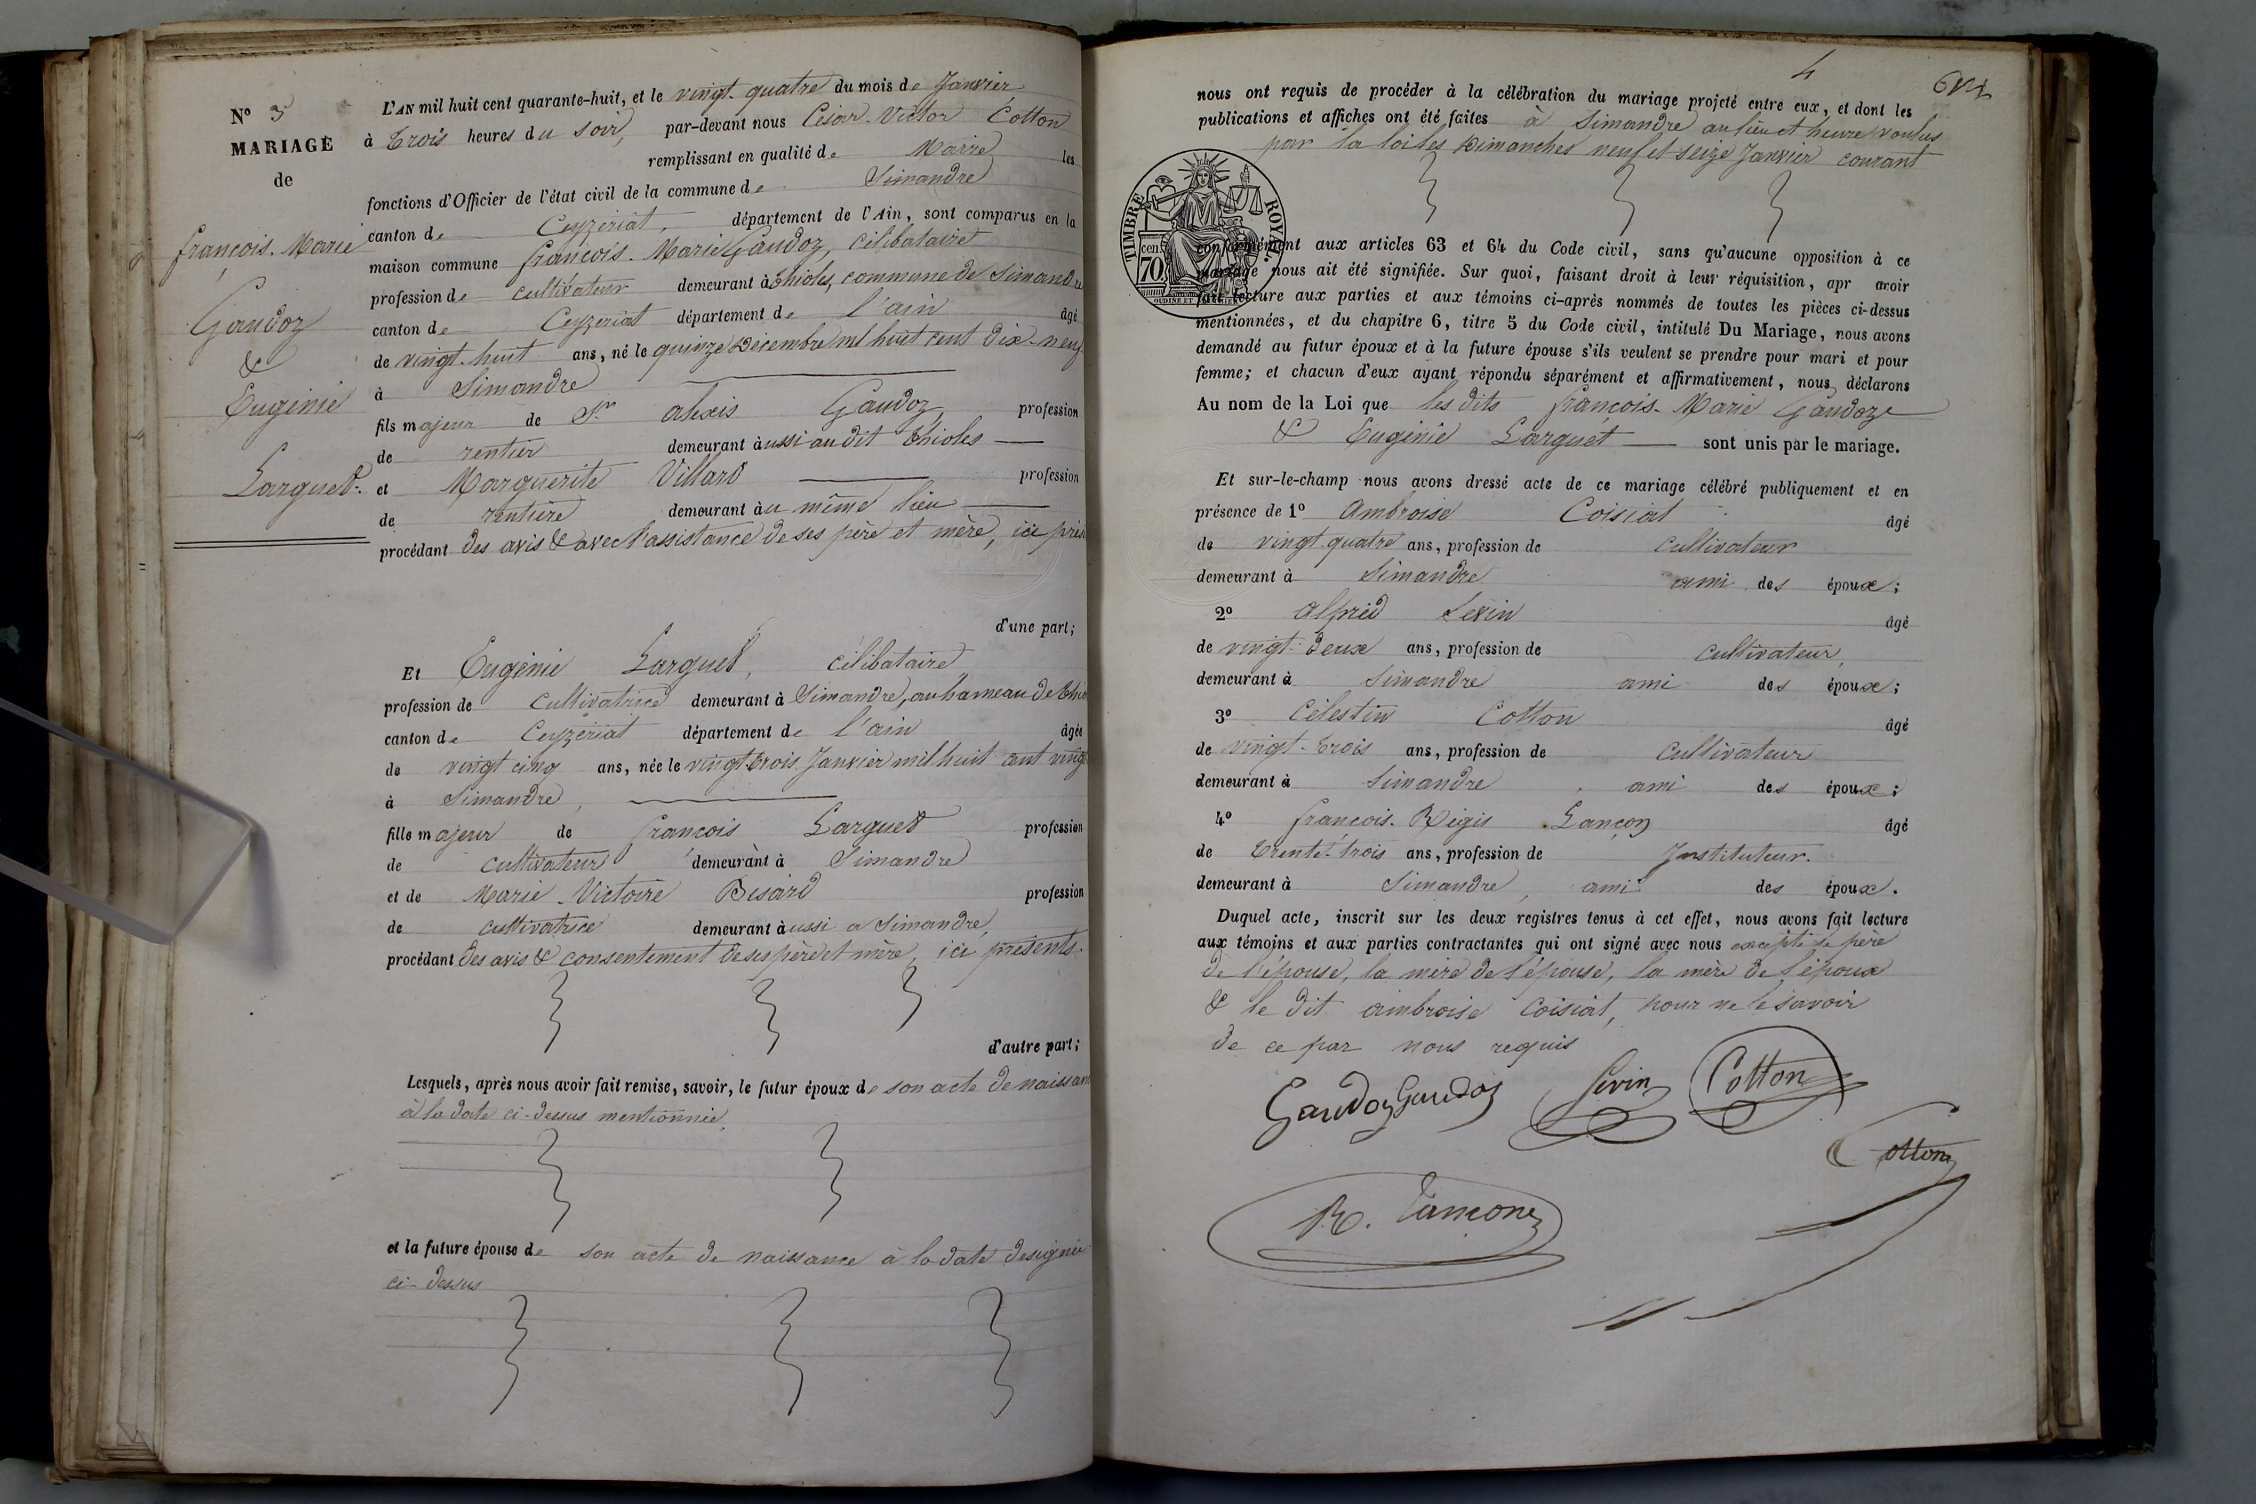 N° 3
MARIAGE
de
françois-Marie
Gaudoz
&
Eugénie
Larguet.
L'AN mil huit cent quarante-huit, et le vingt-quatre du mois de Janvier
à trois heures du soir, par-devant nous César-Victor Cotton
remplissant en qualité de Maire les
fonctions d'Officier de l'état civil de la commune de Simandre
canton de Ceyzériat, département de l'Ain, sont comparus en la
maison commune françois-Marie Gaudoz, célibataire
profession de cultivateur demeurant à thioles, commune de Simandre
canton de Ceyzeriat département de l'ain âgé
de vingt-huit ans, né le quinze Décembre mil huit cent dix-neuf
à Simandre
fils majeur de Sr alexis Gaudoz, profession
de rentier demeurant aussi au dit thioles
et Marguerite Villard profession
de rentière demeurant au même lieu
procédant des avis & avec l'assistance de ses père et mère, ici prés
d'une part;
Et Eugénie Larguet, célibataire
profession de cultivatrice demeurant à Simandre, au hameau de thio
canton de Ceyzériat département de l'ain âgée
de vingt cinq ans, née le vingt-trois Janvier mil huit cent vingt
à Simandre,
fille majeur de françois Larguet profession
de cultivateur demeurant à Simandre
et de Marie-Victoire Bésard profession
de cultivatrice demeurant aussi a Simandre,
procédant des avis & consentement de ses père et mère, ici présents.
d'autre part;
Lesquels, après nous avoir fait remise, savoir, le futur époux de son acte de naissan
à la date ci-dessus mentionnée,
et la future épouse de son acte de naissance à la date designée
ci-dessus
4
nous ont requis de procéder à la célébration du mariage projeté entre eux, et dont les
publications et affiches ont été faites à Simandre au lieu et heure voulus
par la loi les Dimanches neuf et seize Janvier courant
TIMBRE ROYAL.
cent
70
conformément aux articles 63 et 64 du Code civil, sans qu'aucune opposition à ce
mariage nous ait été signifiée. Sur quoi, faisant droit à leur réquisition, apr avoir
fait lecture aux parties et aux témoins ci-après nommés de toutes les pièces ci-dessus
mentionnées, et du chapitre 6, titre 5 du Code civil, intitulé Du Mariage, nous avons
demandé au futur époux et à la future épouse s'ils veulent se prendre pour mari et pour
femme; et chacun d'eux ayant répondu séparément et affirmativement, nous déclarons
Au nom de la Loi que les dits françois-Marie Gaudoz
& Eugénie Larguet sont unis par le mariage.
Et sur-le-champ nous avons dressé acte de ce mariage célébré publiquement et en
présence de 1° Ambroise Coisiat âgé
de vingt quatre ans, profession de cultivateur
demeurant à Simandre ami des époux;
2° alfred Sevin âgé
de vingt-deux ans, profession de cultivateur,
demeurant à Simandre ami des époux;
3° Célestin Cotton âgé
de vingt-trois ans, profession de cultivateur
demeurant à Simandre, ami des époux;
4° françois-Régis Lançon âgé
de trente-trois ans, profession de Instituteur.
demeurant à Simandre, ami des époux.
Duquel acte, inscrit sur les deux registres tenus à cet effet, nous avons fait lecture
aux témoins et aux parties contractantes qui ont signé avec nous excepté le père
de l'épouse, la mère de l'épouse, la mère de l'époux
& le dit ambroise Coisiat, pour ne le savoir
de ce par nous requis
Gaudoz Gaudoz Sevin Cotton
Cotton
R. Lançon